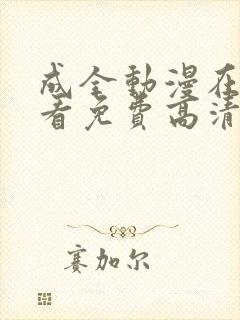 成全動漫在
看免費高清
賽加尔